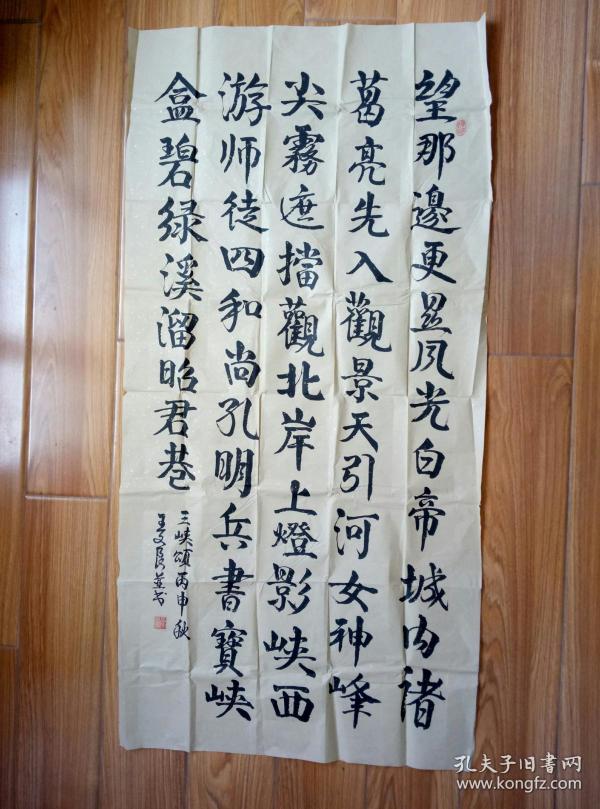 望那邊更显风光白帝城内诸
葛亮先入觀景天引河女神峰
尖霧遮擋觀北岸上燈影峡西
游师徒四和尚孔明兵書寶峡
盒碧绿溪溜昭君巷
三峡颂丙申秋
王文良並书
孔夫子旧書网
www.kongfz.com